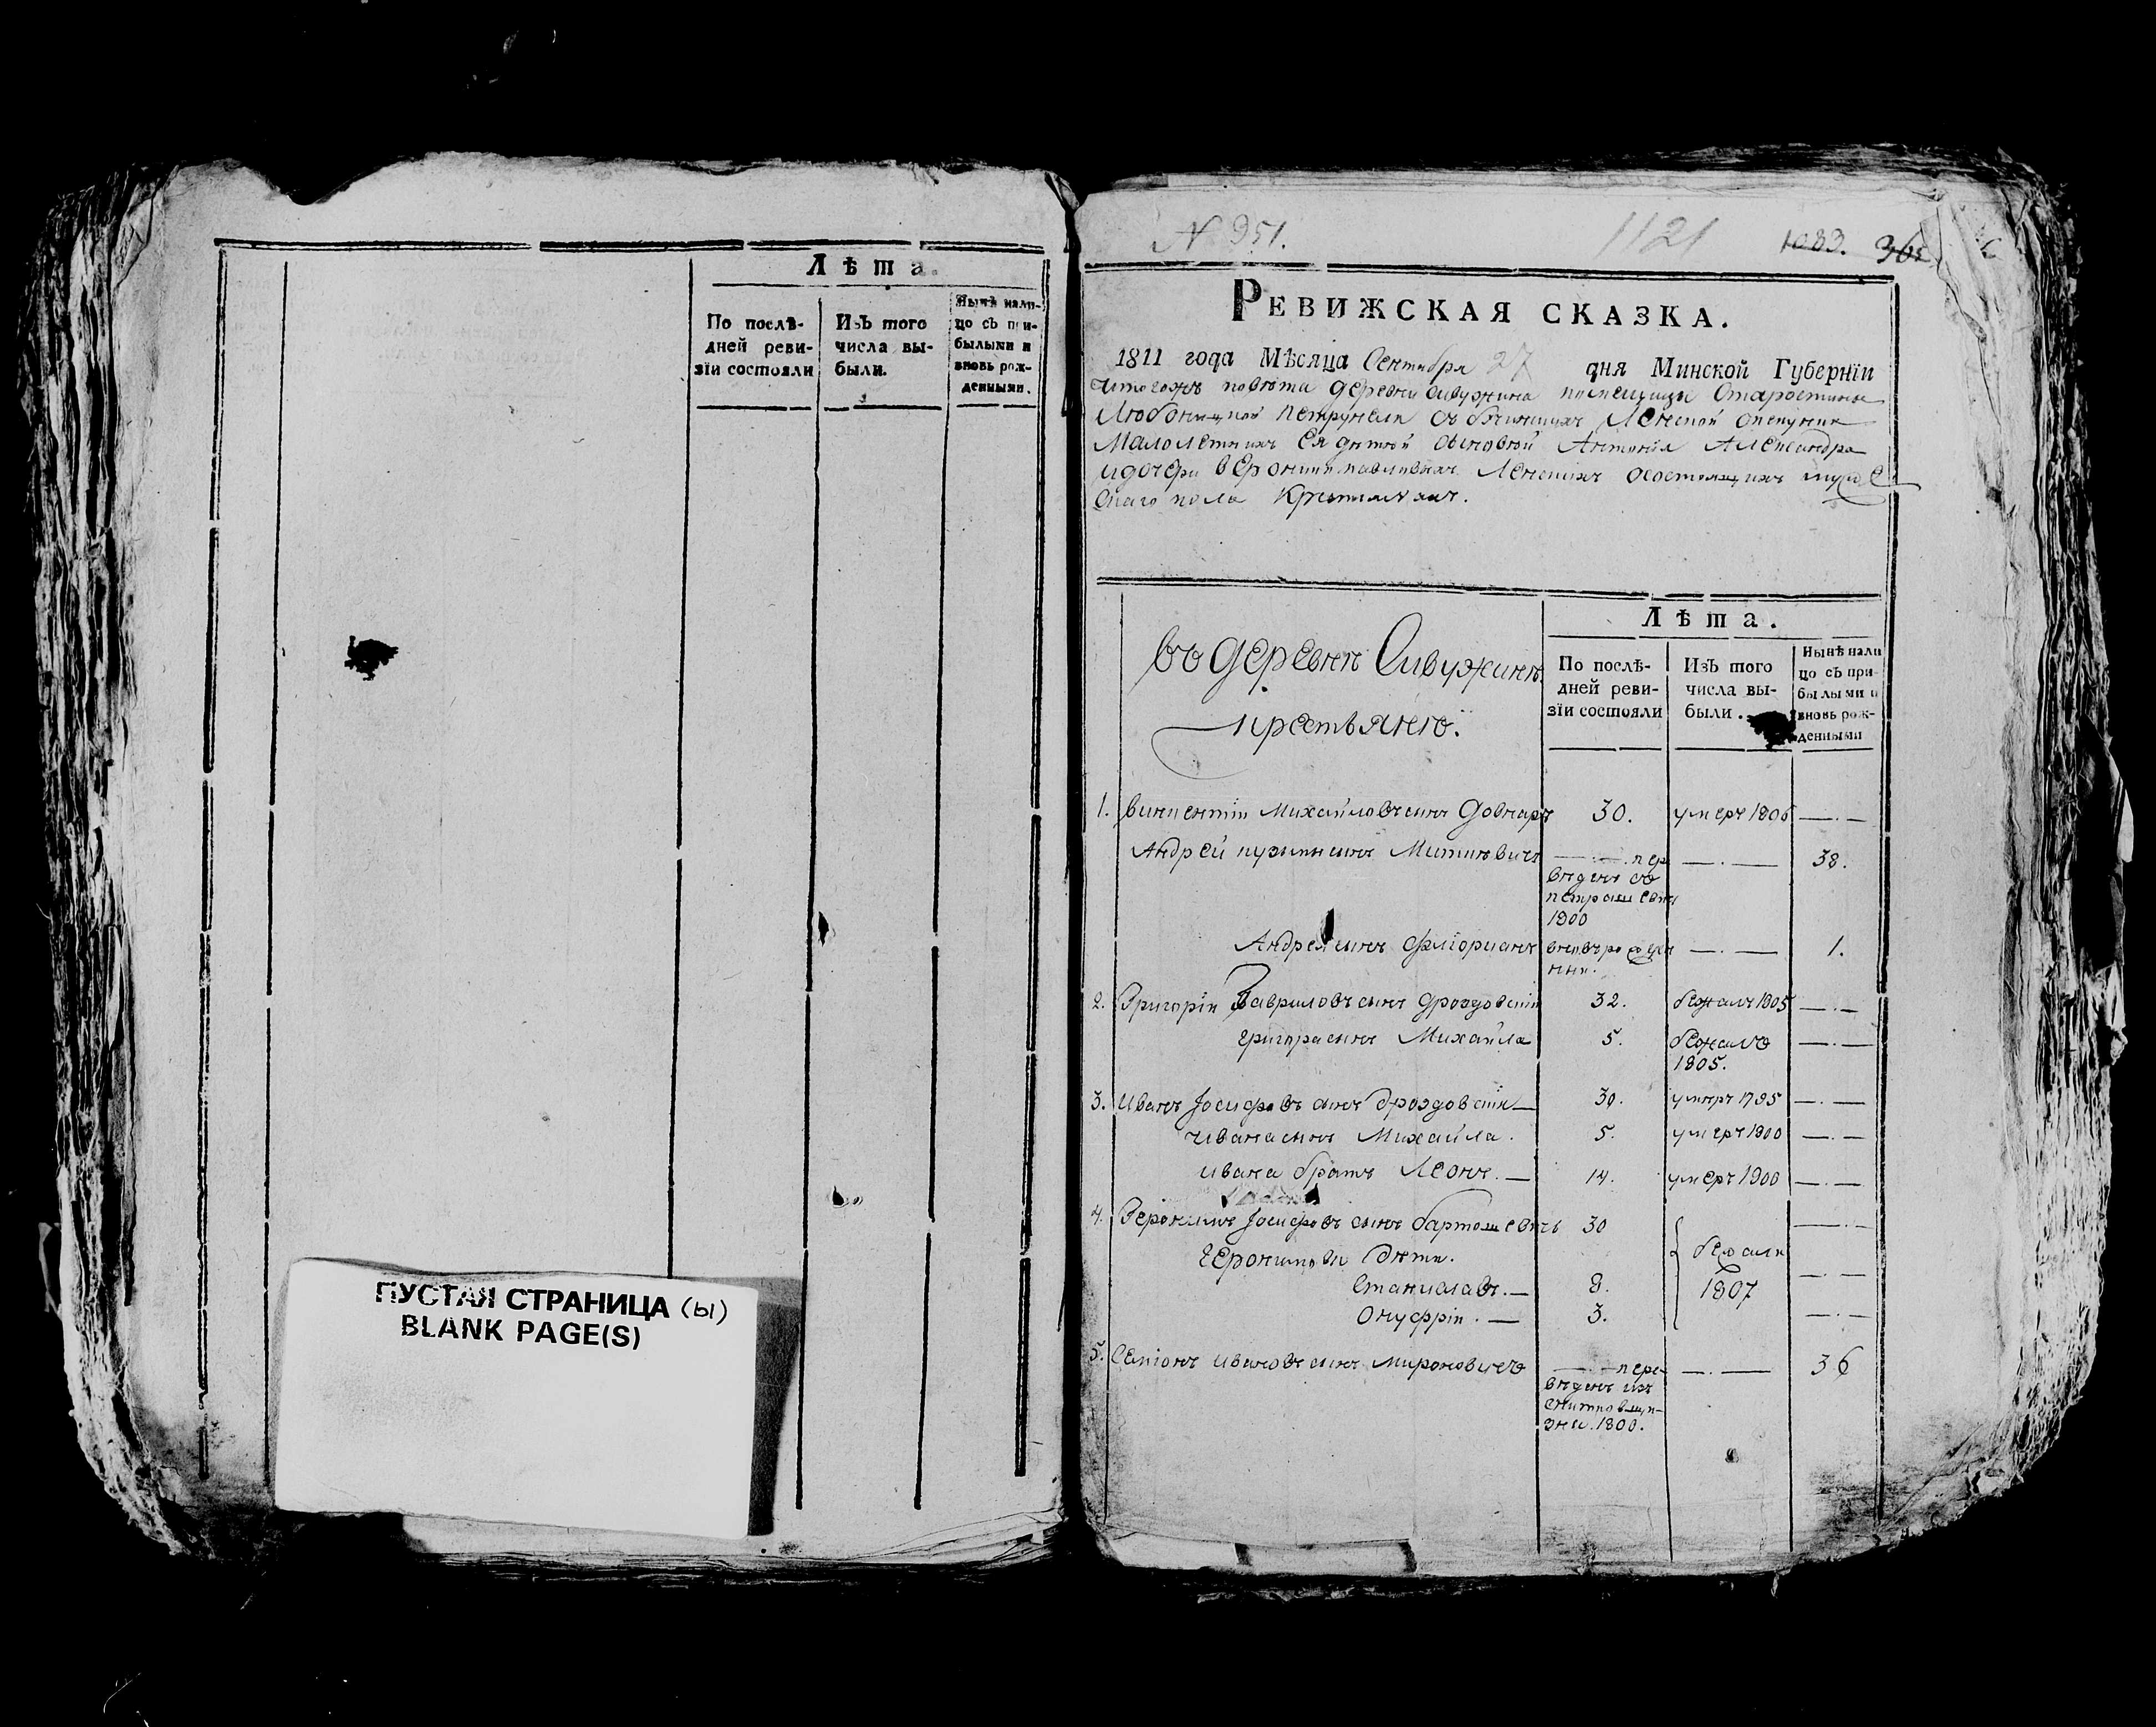 Лѣта.
По послѣ-
дней реви-
зіи состояли
Изъ того
числа вы-
были.
Нынѣ нали-
цо съ при-
былыми и
вновь рож-
денными.
ПУСТАЯ СТРАНИЦА (ы)
BLANK PAGE(S)
N 951.
1121
РЕВИЖСКАЯ СКАЗКА.
1811 года Мѣсяца Сентября 27 дня Минской Губерніи
тогожъ повѣта деревни Сивужина помещицы Старостины
Петрунели Ленской опекунки
Малолетнихъ Ея дѣтей сыновей Антонія Александра
идочери вероники Ленскихъ осостоящихъ муже
скаго пола Крестьянах.
Лѣта.
въ деревни Сивужинѣ
крестьянъ.
По послѣ-
дней реви-
зіи состояли
Изъ того
числа вы-
были.
Нынѣ нали
цо съ при-
былыми и
вновь рож-
денными
1. винцентіи Михайловъ сынъ Довнаръ 30. умеръ 1806 —.—
Андрей кузминъ сынъ Миткевичъ —.— пер —.— 38.
веденъ съ
петрашевич
1800
Андрея сынъ Флиорианъ вновьрожде —.— 1.
нны.
2. Григоріи Гавриловъ сынъ дроздовскіи 32. бежалъ 1805 —.—
григора сынъ Михайла 5. бежалъ —.—
1805.
3. Иванъ Іосифовъ сынъ дроздовскіи — 30. умеръ 1795 —.—
ивана сынъ Михайла. 5. умеръ 1800 —.—
ивана братъ Леонъ. — 14. умеръ 1800 —.—
4. Геронимъ Іосифовъ сынъ бартошевичъ 30 —.—
геронимови дѣти. бежали
Станиславъ. — 8. 1807 —.—
Онуфріи. — 3. —.—
5. Семіонъ ивановъ сынъ мироновичъ —.— пере- —.— 36
веденъ изъ
зни. 1800.